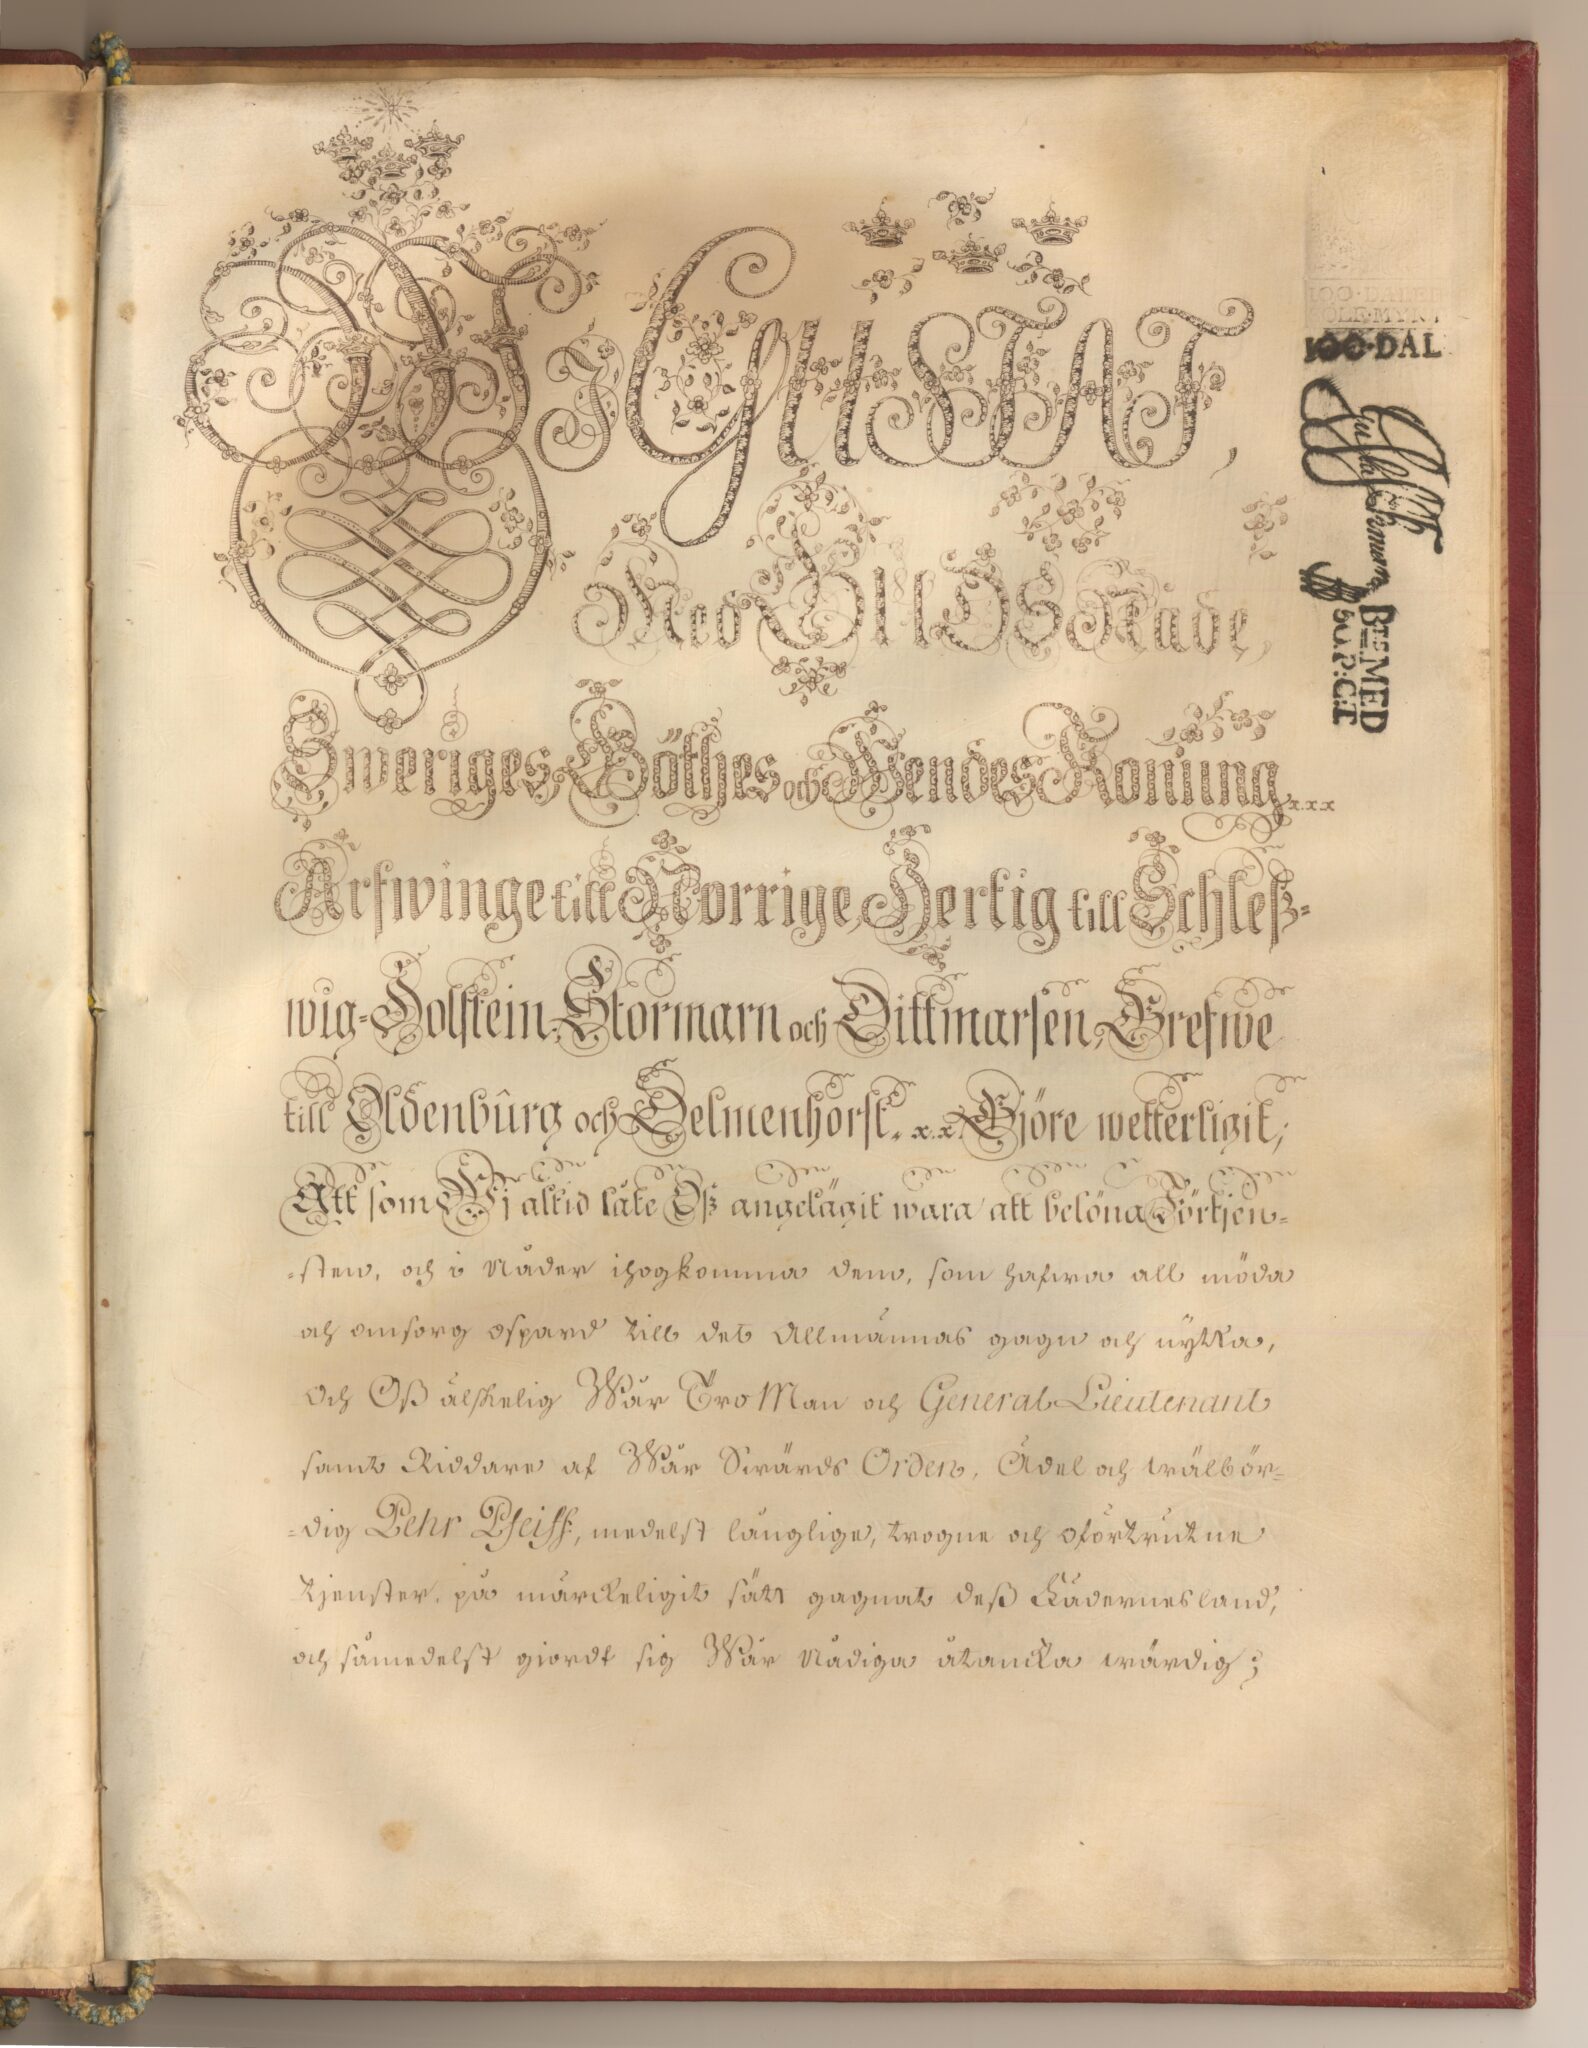 Wi GUSTAF,
Med GUDS Nåde,
Sweriges, Göthes och Wendes Konung x.x.x
Arfwinge till Norrige, Hertig till Schleß-
wig-Holstein, Stormarn och Dittmarsen, Grefwe
till Oldenbûrg och Delmenhorst. x.x. Gjöre wetterligit,
Att som Wj altid låte Oß angelägit wara att belöna Förtjen-
-sten, och i Nåder ihogkomma dem, som hafwa all möda
och omsorg ospard till det Allmännas gagn och nytta,
Och Oß älskelig Wår Tro Man och General Lieutenant
samt Riddare af Wår Swärds Orden, Ädel och wälbör-
-dig Pehr Pfeiff, medelst långlige, trogne och oförtrutne
tjenster, på märckeligit sätt gagnat deß Fädernesland,
och såmedelst giordt sig Wår Nådiga åtancka wärdig;
100·DALER
SÖLF·MYNT
100·DAL
BEMED
50.P:CT